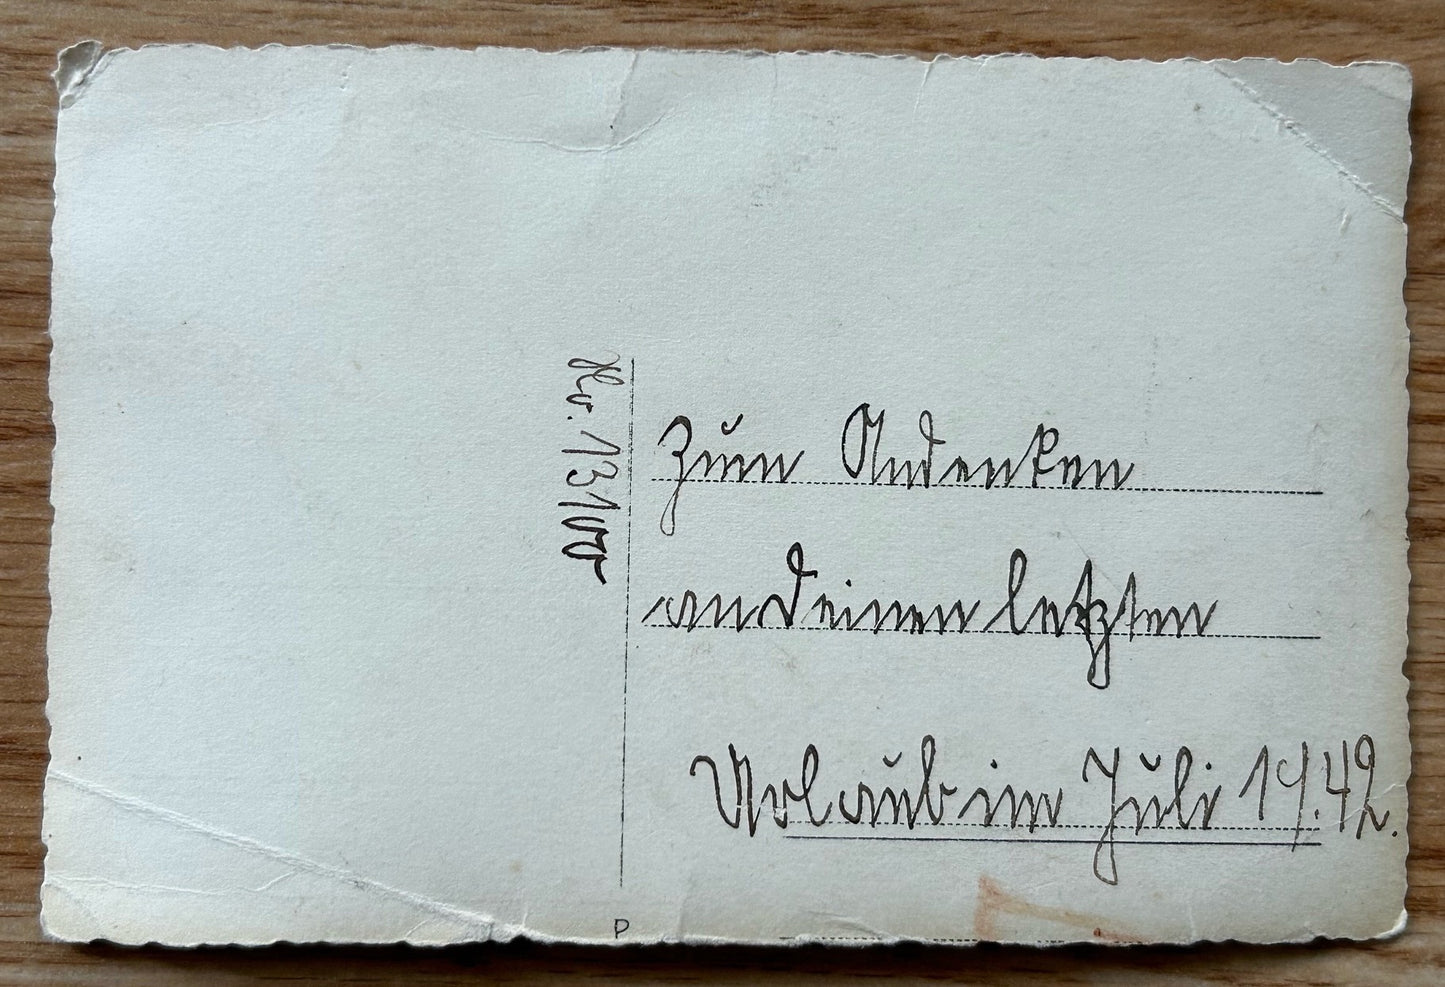 Nr. 13100
Zum Andenken
an Deinen letzten
Urlaub im Juli 1942.
P